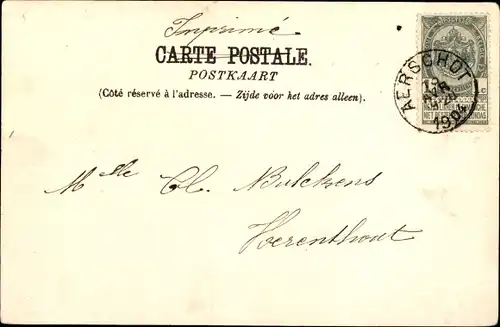 Imprimé
CARTE POSTALE.
POSTKAART
(Côté réservé à l'adresse. — Zijde voor het adres alleen).
AERSCHOT
1904
Mlle Cl. Bulckens
Herenthout